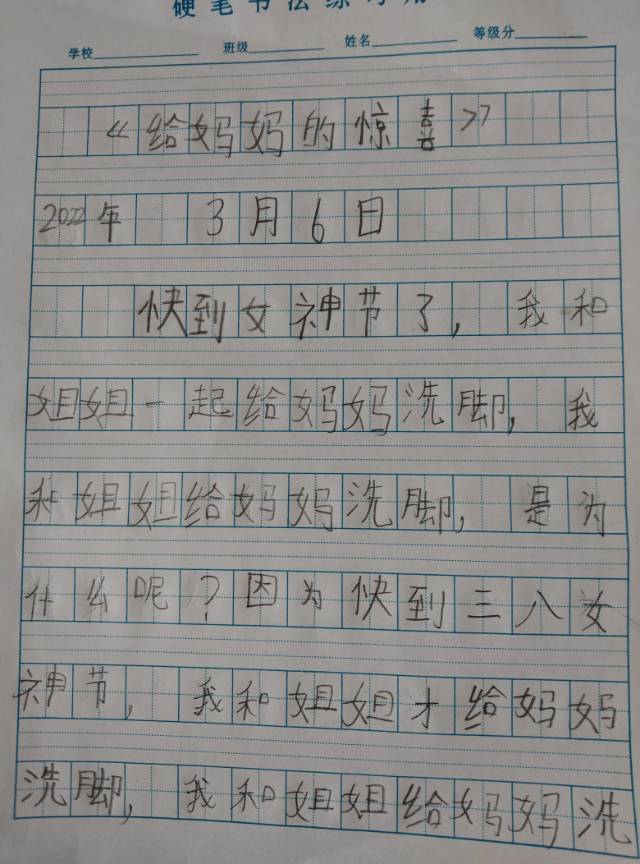 硬笔书法练习用
学校 班级 姓名 等级分
《给妈妈的惊喜》
2022年 3月6日
快到女神节了，我和
姐姐一起给妈妈洗脚，我
和姐姐给妈妈洗脚，是为
什么呢？因为快到三八女
神节，我和姐姐才给妈妈
洗脚，我和姐姐给妈妈洗